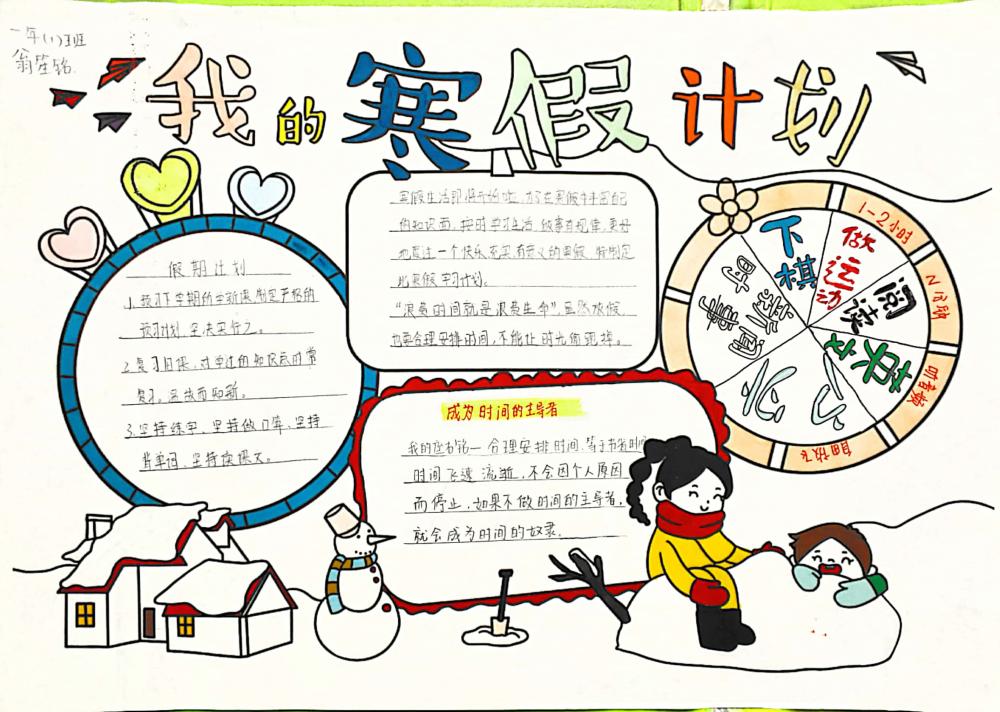 一年(1)班
翁笙铭
我的寒假计划
假期计划
1.预习下学期的学新课,制定严格的
预习计划,坚决实行之。
2.复习旧课,对学过的知识应时常
复习。温故而知新。
3.坚持练字、坚持做口算、坚持
背单词、坚持读课文。
寒假生活即将开始啦,为了在寒假中丰富自己
的知识面,按时学习生活,做事有规律,更好
地度过一个快乐充实有意义的寒假,特制定
此寒假学习计划。
“浪费时间就是浪费生命”虽然放假,
也要合理安排时间,不能让时光偷跑掉。
成为时间的主导者
我的座右铭—合理安排时间,等于节省时间
时间飞速流逝,不会因个人原因
而停止,如果不做时间的主导者,
就会成为时间的奴隶。
下棋
做运动
阅读
英文
时事新闻
1-2小时
听音频
自由放飞